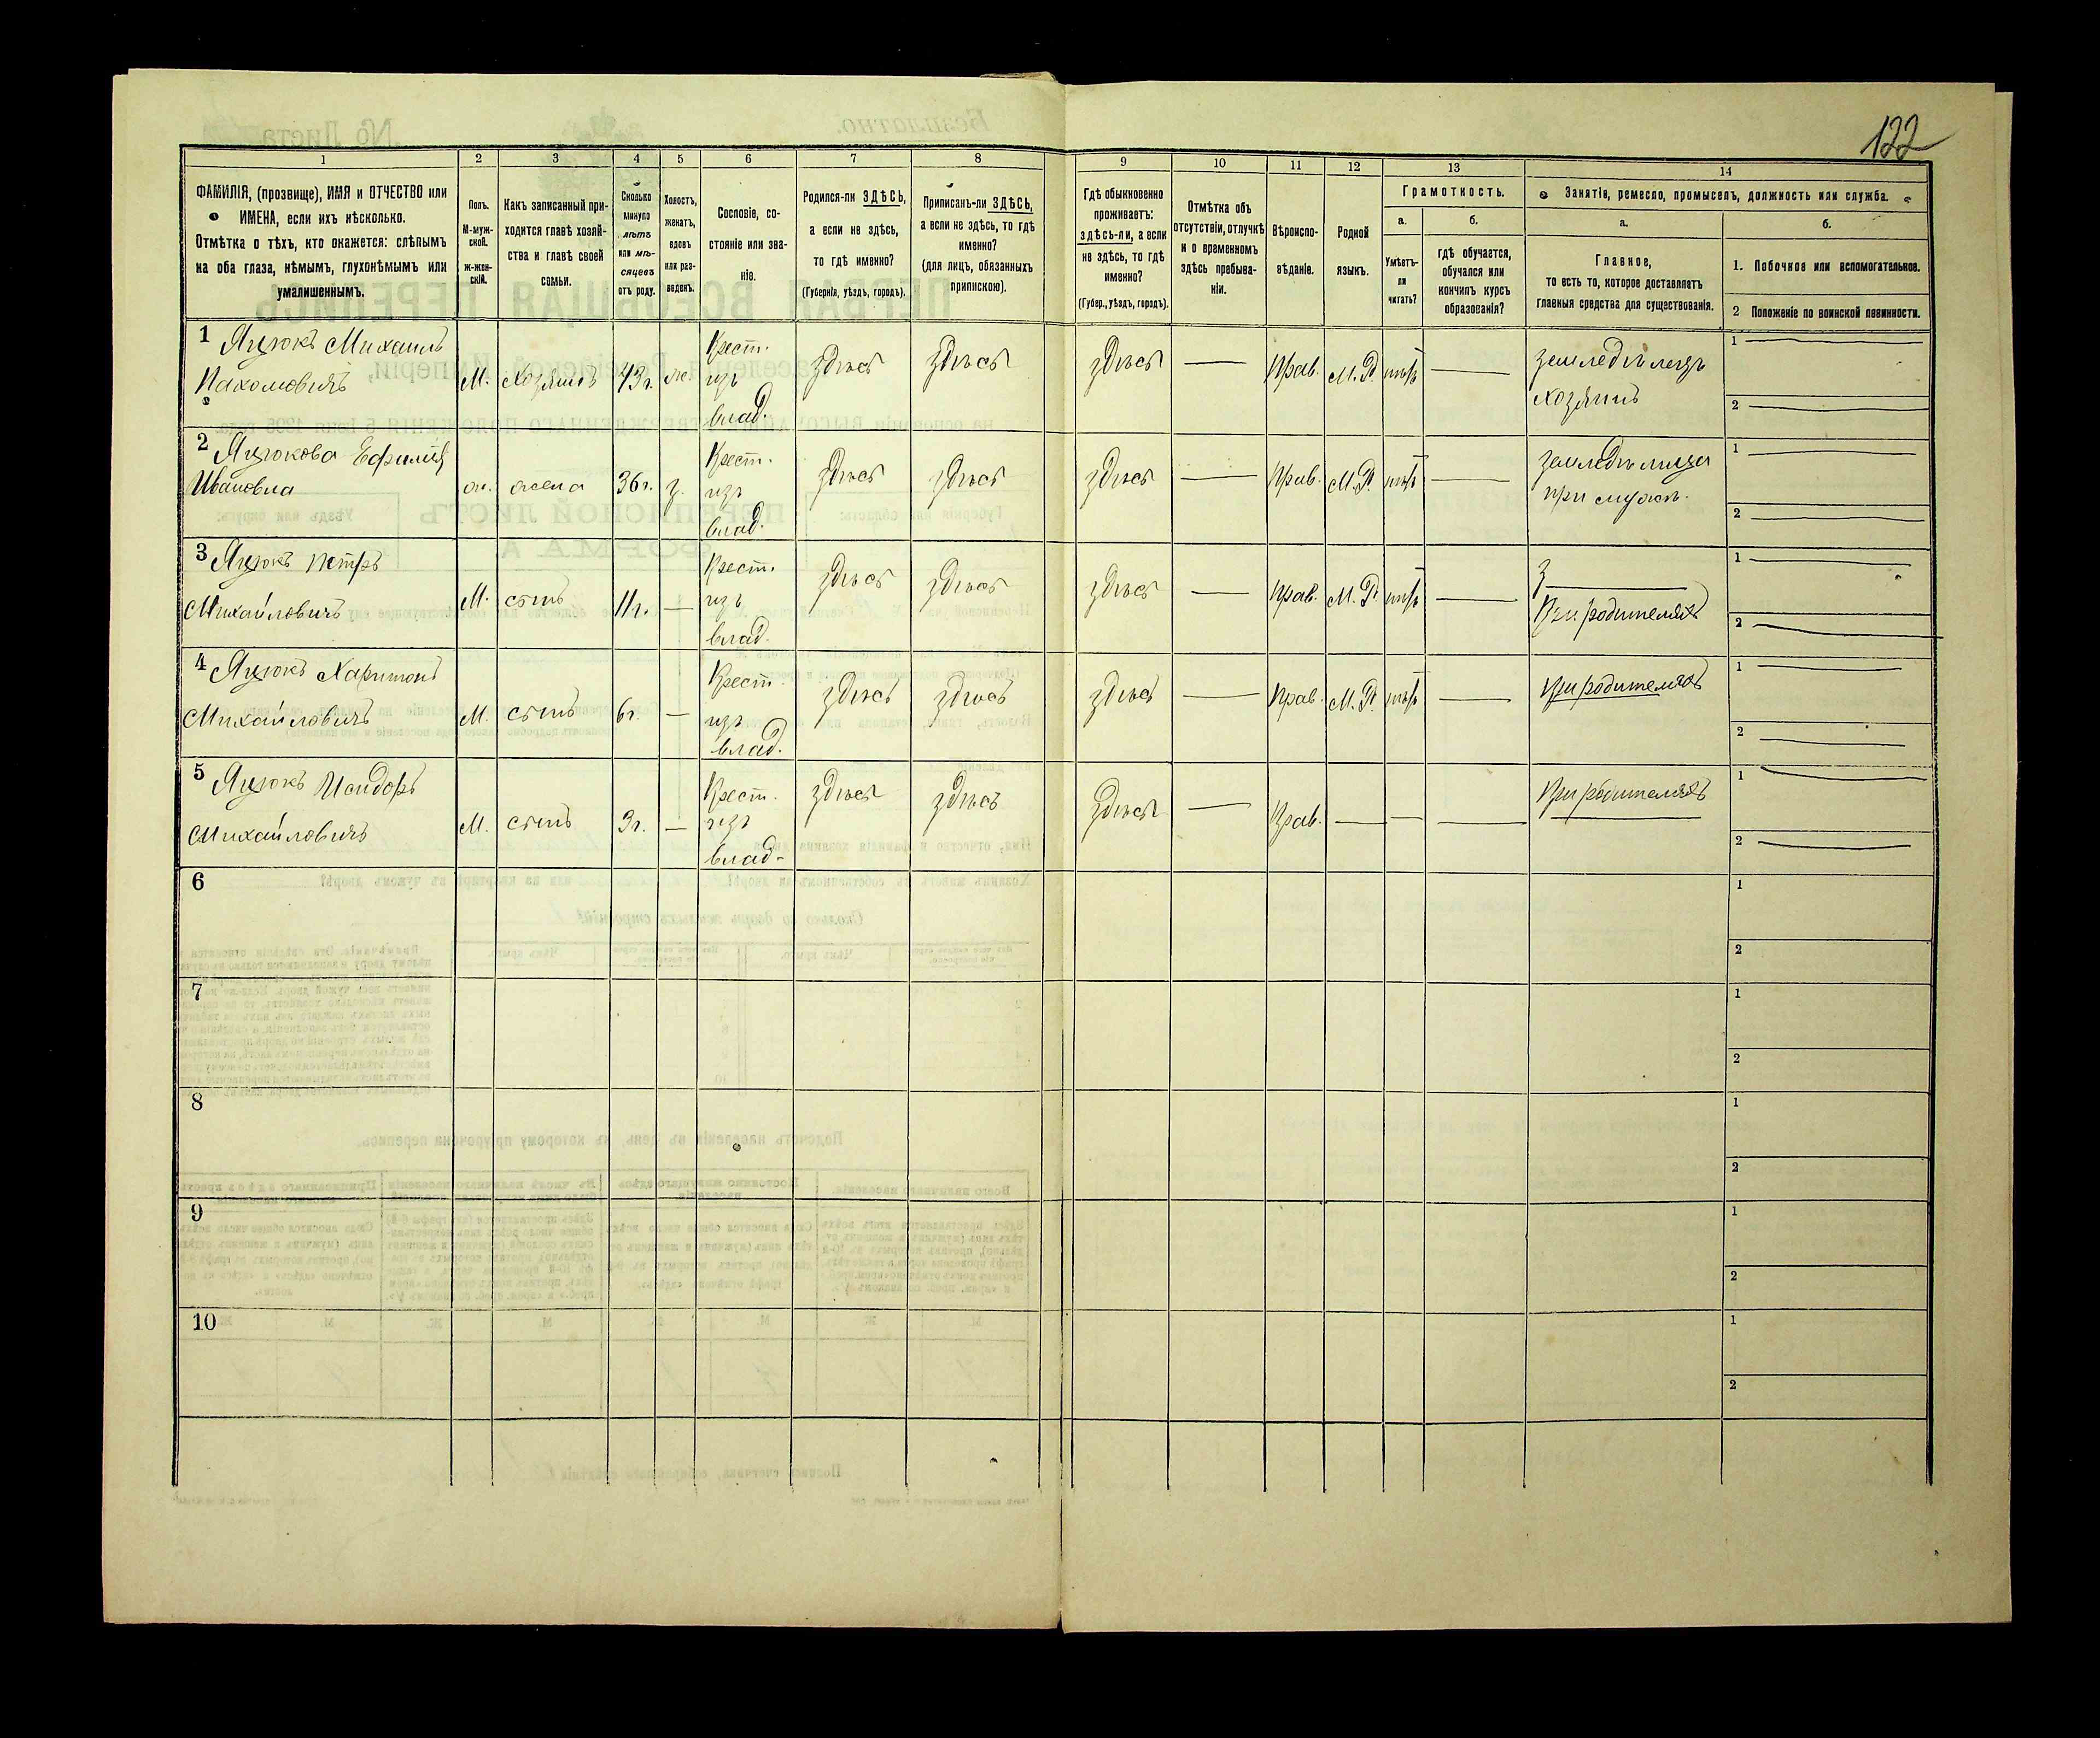 122
1 2 3 4 5 6 7 8 9 10 11 12 13 14
ФАМИЛІЯ, (прозвище), ИМЯ и ОТЧЕСТВО или
ИМЕНА, если ихъ нѣсколько.
Отмѣтка о тѣхъ, кто окажется: слѣпымъ
на оба глаза, нѣмымъ, глухонѣмымъ или
умалишеннымъ.
Полъ.
М-муж-
ской.
ж-жен-
скій.
Какъ записанный при-
ходится главѣ хозяй-
ства и главѣ своей
семьи.
Сколько
минуло
лѣтъ
или мѣ-
сяцевъ
отъ роду.
Холостъ,
женатъ,
вдовъ
или раз-
веденъ.
Сословіе, со-
стояніе или зва-
ніе.
Родился-ли ЗДѢСЬ,
а если не здѣсь,
то гдѣ именно?
(Губернія, уѣздъ, городъ).
Приписанъ-ли ЗДѢСЬ,
а если не здѣсь, то гдѣ
именно?
(для лицъ, обязанныхъ
припискою).
Гдѣ обыкновенно
проживаетъ:
здѣсь-ли, а если
не здѣсь, то гдѣ
именно?
(Губер., уѣздъ, городъ).
Отмѣтка объ
отсутствіи, отлучкѣ
и о временномъ
здѣсь пребыва-
ніи.
Вѣроиспо-
вѣданіе.
Родной
языкъ.
Грамотность.
а.
Умѣетъ-
ли
читать?
б.
гдѣ обучается,
обучался или
кончилъ курсъ
образованія?
Занятія, ремесло, промыселъ, должность или служба.
а.
Главное,
то есть то, которое доставляетъ
главныя средства для существованія.
б.
1. Побочное или вспомогательное.
2 Положеніе по воинской повинности.
1 Яцюкъ Михаилъ
Пахомовичъ М. Хозяинъ 43 г. ж. Крест. изъ влад. здѣсь здѣсь здѣсь — Прав. М.Р. нѣтъ — земледѣлецъ
хозяинъ 1 — 2 —
2 Яцюкова Ефимія
Ивановна ж. жена 36 г. з. Крест. изъ влад. здѣсь здѣсь здѣсь — Прав. М.Р. нѣтъ —
при мужѣ. 1 — 2 —
3 Яцюкъ Петръ
Михайловичъ М. сынъ 11 г. — Крест. изъ влад. здѣсь здѣсь здѣсь — Прав. М.Р. нѣтъ —
При родителяхъ 1 — 2 —
4 Яцюкъ Харитонъ
Михайловичъ М. сынъ 6 г. — Крест. изъ влад. здѣсь здѣсь здѣсь — Прав. М.Р. нѣтъ — При родителяхъ 1 — 2 —
5 Яцюкъ Исидоръ
Михайловичъ М. сынъ 3 г. — Крест. изъ влад. здѣсь здѣсь здѣсь — Прав. — — — При родителяхъ 1 — 2 —
6 1 2
7 1 2
8 1 2
9 1 2
10 1 2